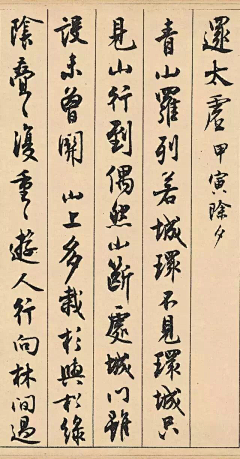 還太虛 甲寅除夕
青山羅列若城環不見環城只
見山行到偶然山斷處城門雖
設未曾關 山上多栽杉與松綠
陰疊疊復重重遊人行向林間過